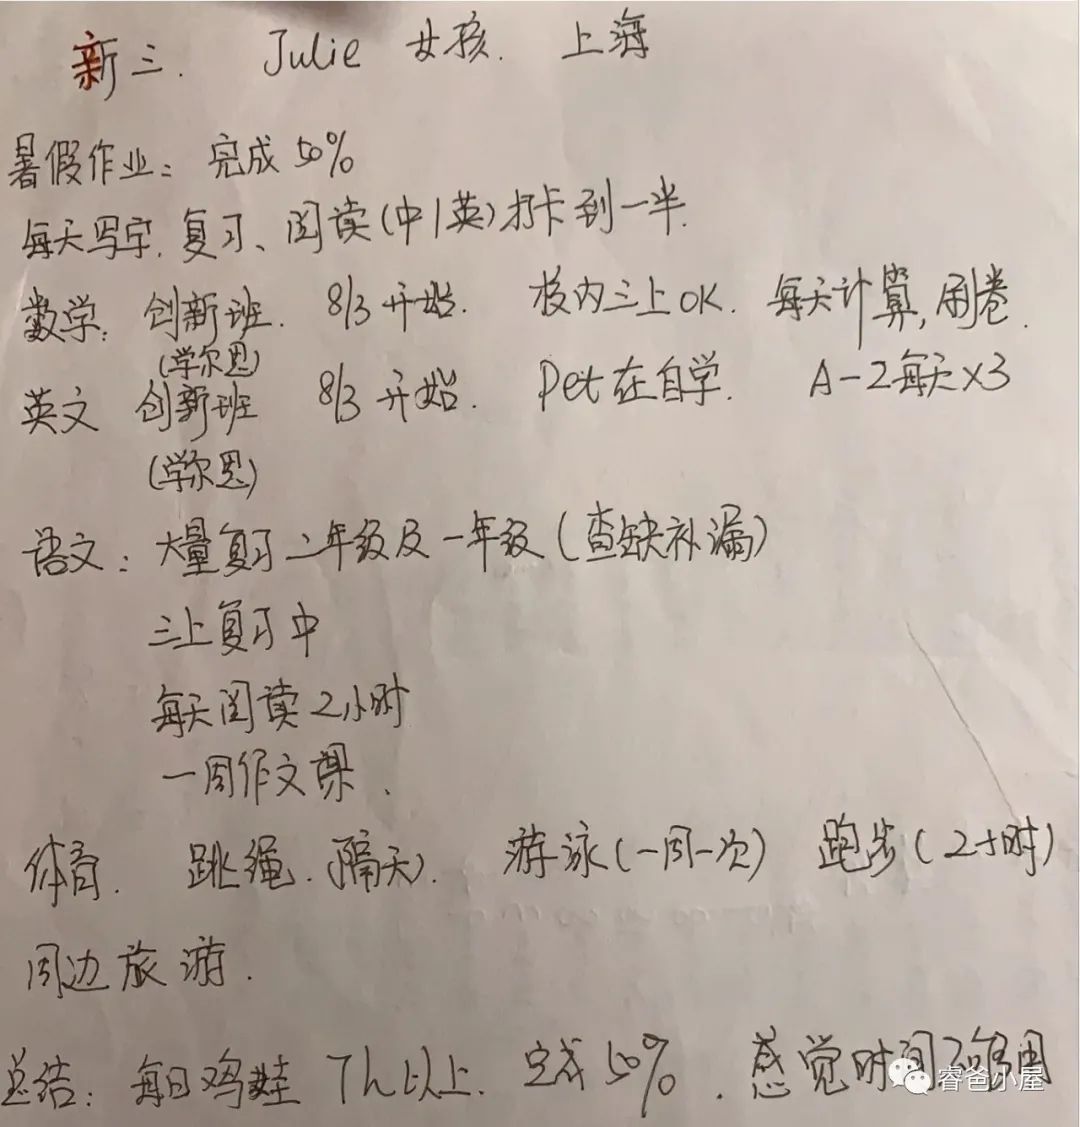 新三. Julie 女孩. 上海
暑假作业: 完成50%
每天写字.复习、阅读(中/英)打卡到一半.
数学: 创新班. 8/3开始. 校内三上OK. 每天计算,刷卷.
(学尔思)
英文 创新班 8/3开始. Pet在自学. A-2每天×3
(学尔思)
语文: 大量复习二年级及一年级(查缺补漏)
三上复习中
每天阅读2小时
一周作文课.
体育. 跳绳.(隔天). 游泳(一周一次) 跑步(2小时)
周边旅游.
总结: 每日鸡娃7h以上. 完成50%. 感觉时间不够用
睿爸小屋